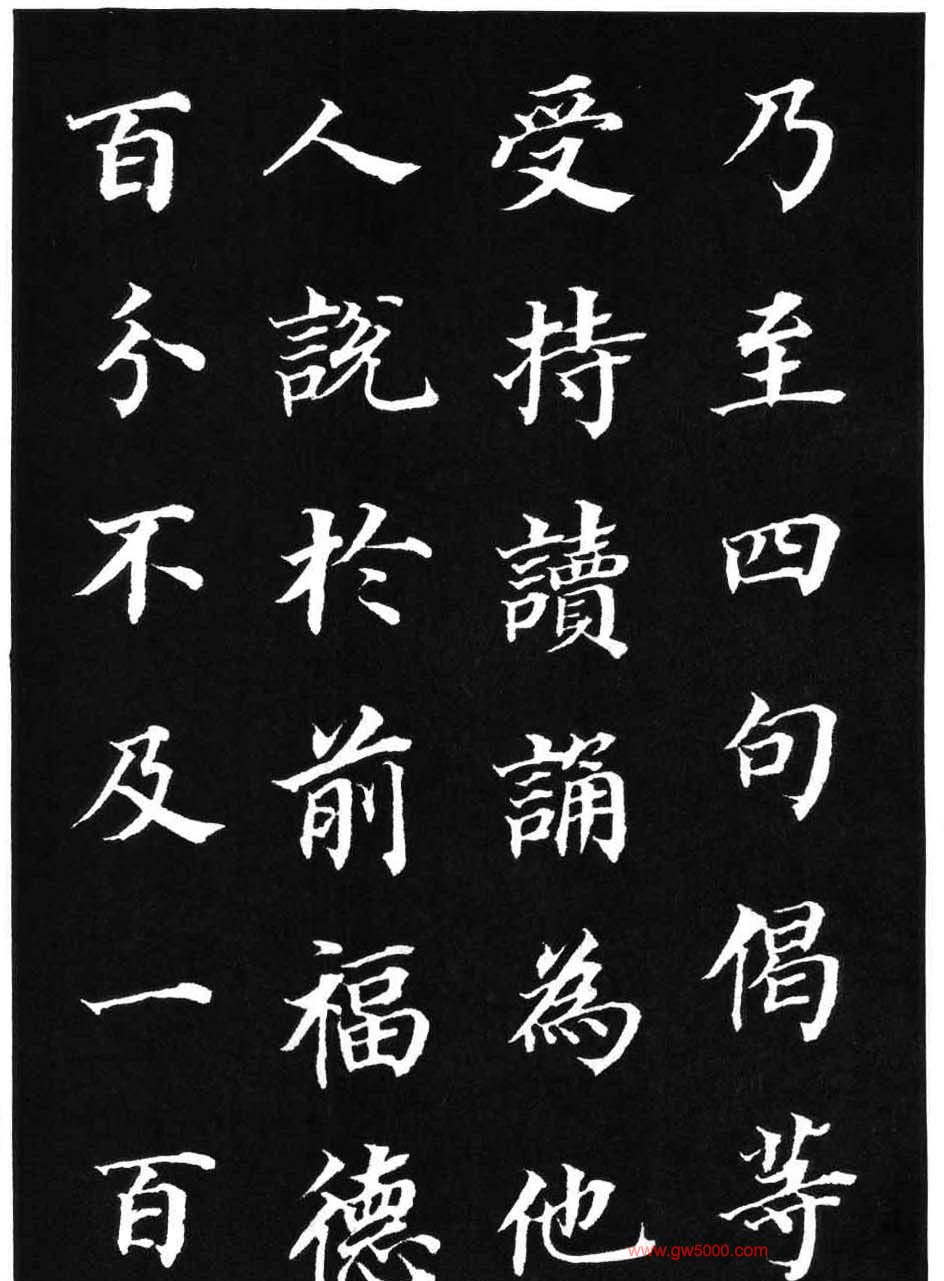 乃至四句偈等
受持讀誦為他
人說於前福德
百分不及一百
www.gw5000.com